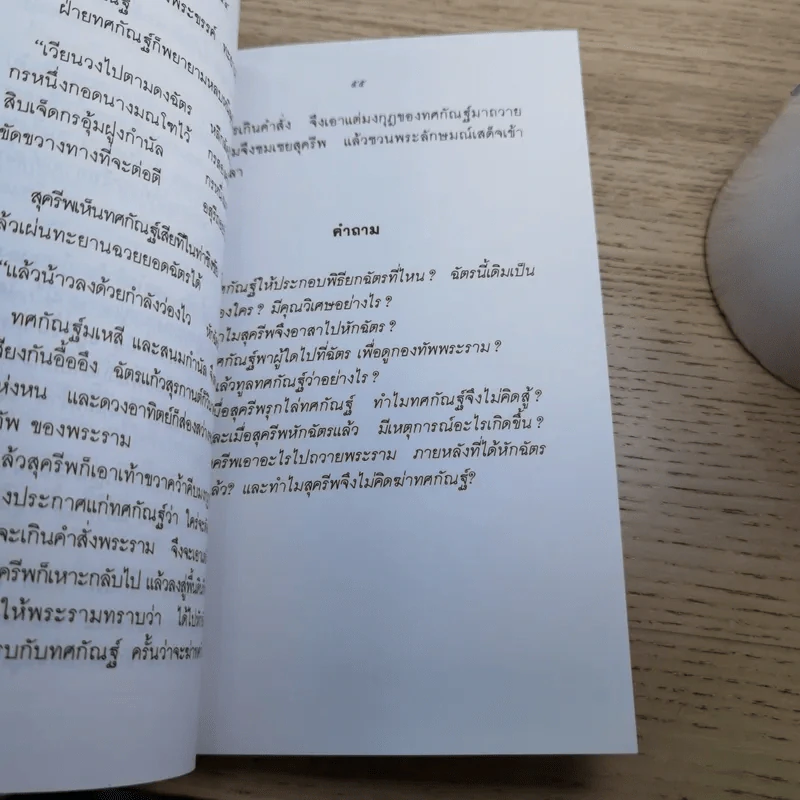 ฝ่ายทศกัณฐ์ก็พยายาม
"เวียนวงไปตามดงฉัตร
กรหนึ่งกอดนางมณโฑไว้
สิบเจ็ดกรอุ้มฝูงกำนัล
ขัดขวางทางที่จะต่อตี
สุครีพเห็นทศกัณฐ์เสียทีในท่า
แล้วเผ่นทะยานฉวยยอดฉัตรได้
"แล้วน้าวลงด้วยกำลังว่องไว
ทศกัณฐ์มเหสี และสนมกำนัล
กันอื้ออึง ฉัตรแก้วสุรกานต์
และดวงอาทิตย์ก็ส่องสว่าง
ของพระราม
แล้วสุครีพก็เอาเท้าขวาคว้าคีบ
ประกาศแก่ทศกัณฐ์ว่า ใคร่จะ
จะเกินคำสั่งพระราม จึงจะเอา
ก็เหาะกลับไป แล้วลงสู่พื้น
ให้พระรามทราบว่า ได้ไป
กับทศกัณฐ์ ครั้นว่าจะฆ่า
๕๕
เกินคำสั่ง จึงเอาแต่มงกุฎของทศกัณฐ์มาถวาย
จึงชมเชยสุครีพ แล้วชวนพระลักษมณ์เสด็จเข้า
คำถาม
ให้ประกอบพิธียกฉัตรที่ไหน? ฉัตรนี้เดิมเป็น
ของใคร? มีคุณวิเศษอย่างไร?
ทำไมสุครีพจึงอาสาไปหักฉัตร?
ทศกัณฐ์พาผู้ใดไปที่ฉัตร เพื่อดูกองทัพพระราม?
แล้วทูลทศกัณฐ์ว่าอย่างไร?
เมื่อสุครีพรุกไล่ทศกัณฐ์ ทำไมทศกัณฐ์จึงไม่คิดสู้?
และเมื่อสุครีพหักฉัตรแล้ว มีเหตุการณ์อะไรเกิดขึ้น?
สุครีพเอาอะไรไปถวายพระราม ภายหลังที่ได้หักฉัตร
แล้ว? และทำไมสุครีพจึงไม่คิดฆ่าทศกัณฐ์?